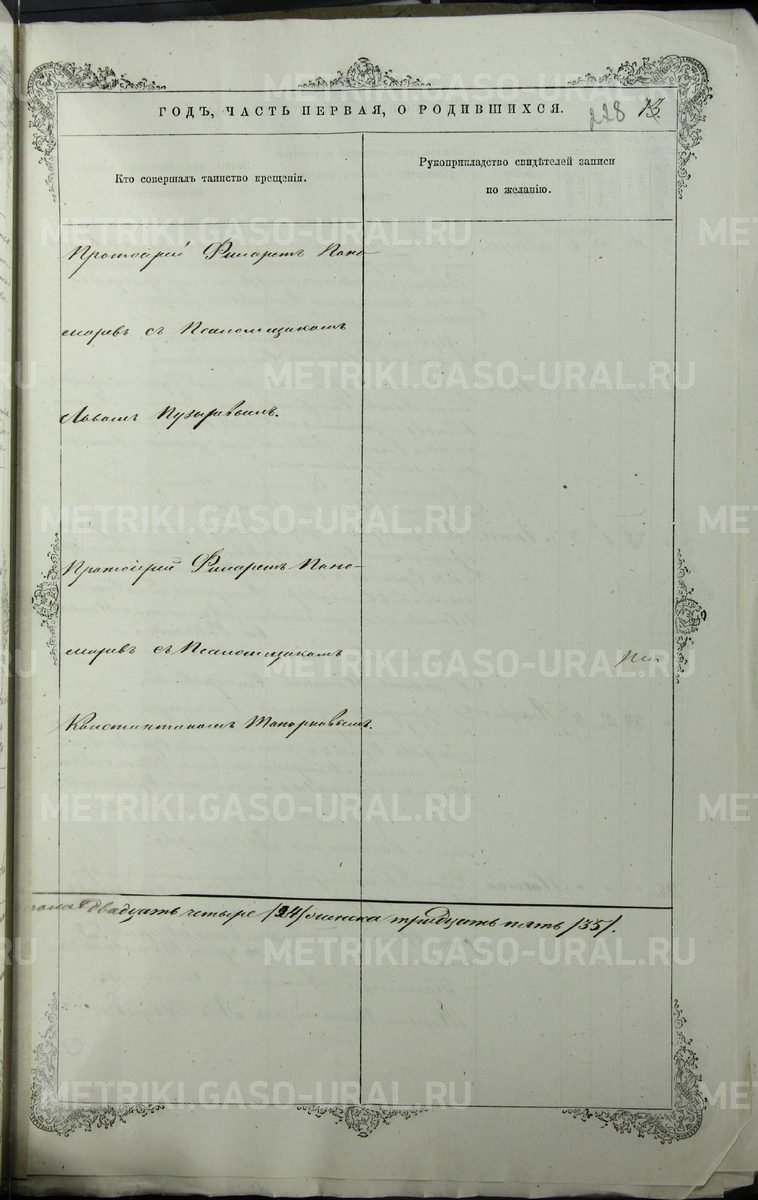 ГОДЪ, ЧАСТЬ ПЕРВАЯ, О РОДИВШИХСЯ.
228 13.
Кто совершалъ таинство крещенія.
Рукоприкладство свидѣтелей записи
по желанію.
Протоіерей Филаретъ Поно-
маревъ съ Псаломщикомъ
Львомъ Пузыревымъ.
Протоіерей Филаретъ Поно-
маревъ съ Псаломщикомъ
Константиномъ Топорковымъ.
двадцать четыре /24/ женска тридцать пять /35/.
METRIKI.GASO-URAL.RU